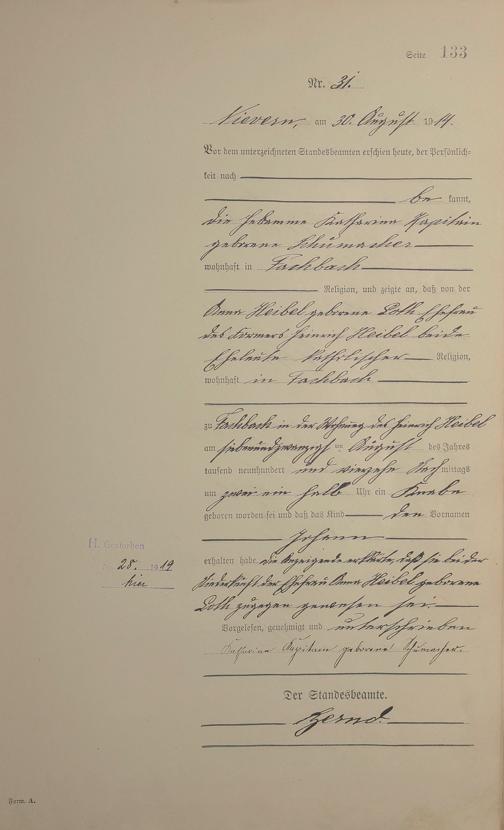 Seite 133
Nr. 31.
Nievern, am 30. August 1914.
Vor dem unterzeichneten Standesbeamten erschien heute, der Persönlich-
keit nach
be kannt,
die Hebamme Katharina Kapitain
geborene Schumacher
wohnhaft in Fachbach
Religion, und zeigte an, daß von der
Anna Heibel geborene Loth Ehefrau
des Formers Heinrich Heibel beide
Eheleute katholischer Religion,
wohnhaft in Fachbach
zu Fachbach in der Wohnung des Heinrich Heibel
am siebenundzwanzigsten August des Jahres
tausend neunhundert und vierzehn Nachmittags
um zwei ein halb Uhr ein Knabe
geboren worden sei und daß das Kind den Vornamen
Johann
erhalten habe. die Anzeigende erklärte, daß sie bei der
Niederkunft der Ehefrau Anna Heibel geborene
Loth zugegen gewesen sei.
Vorgelesen, genehmigt und unterschrieben
Katharina Kapitain geborene Schumacher.
Der Standesbeamte.
Bernd.
H. Gestorben
28. 1914
hier
Form. A.